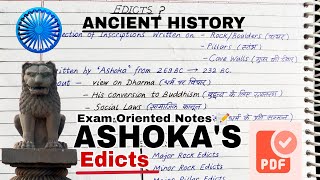 EDICTS ?
ANCIENT HISTORY
ection of Inscriptions written on - Rock/Boulders
- Pillars (स्तंभ)
- Cave Walls
ritten by "Ashoka" from 269 BC → 232 BC.
out - view on Dharma
His conversion to Buddhism
Social Laws (सामाजिक कानून)
Exam Oriented Notes
ASHOKA'S
Edicts
Major Rock Edicts
Minor Rock Edicts
Major Pillar Edicts
PDF